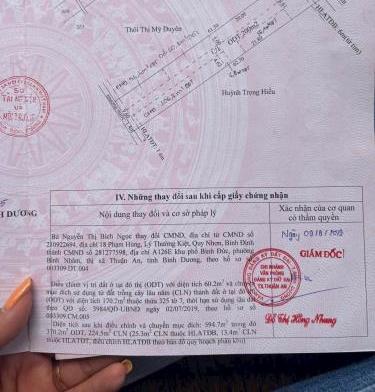 Thôi Thị Mỹ Duyên
ODT: 200m2
HLATĐB: 6m (từ tim)
Huỳnh Trọng Hiếu
SỞ
TÀI NGUYÊN
VÀ
MÔI TRƯỜNG
H DƯƠNG
IV. Những thay đổi sau khi cấp giấy chứng nhận
Nội dung thay đổi và cơ sở pháp lý
Xác nhận của cơ quan
có thẩm quyền
Bà Nguyễn Thị Bích Ngọc thay đổi CMND, địa chỉ từ CMND số
210922694, địa chỉ 18 Phạm Hùng, Lý Thường Kiệt, Quy Nhơn, Bình Định
thành CMND số 281277598, địa chỉ A126E khu phố Bình Đức, phường
Bình Nhâm, thị xã Thuận An, tỉnh Bình Dương, theo hồ sơ số
003309.ĐT.004
Điều chỉnh vị trí đất ở tại đô thị (ODT) với diện tích 60.2m2 và chuyển
mục đích sử dụng từ đất trồng cây lâu năm (CLN) thành đất ở tại đô thị
(ODT) với diện tích 170.2m2 thuộc thửa 325 tờ 7, thời hạn sử dụng lâu dài
theo QĐ số: 3984/QĐ-UBND ngày 02/07/2019, theo hồ sơ số
003309.CM.005
Diện tích sau khi điều chỉnh và chuyển mục đích: 594.7m2 trong đó
370.2m2 ODT, 224.5m2 CLN (25.3m2 CLN thuộc HLATĐB, 13.4m2 CLN
thuộc HLATĐT, điều chỉnh HLATĐB theo bản đồ quy hoạch phân khu)
Ngày 09/8/2019
GIÁM ĐỐC
CHI NHÁNH
VĂN PHÒNG
ĐĂNG KÝ ĐẤT ĐAI
TX.THUẬN AN
Đỗ Thị Hồng Nhung